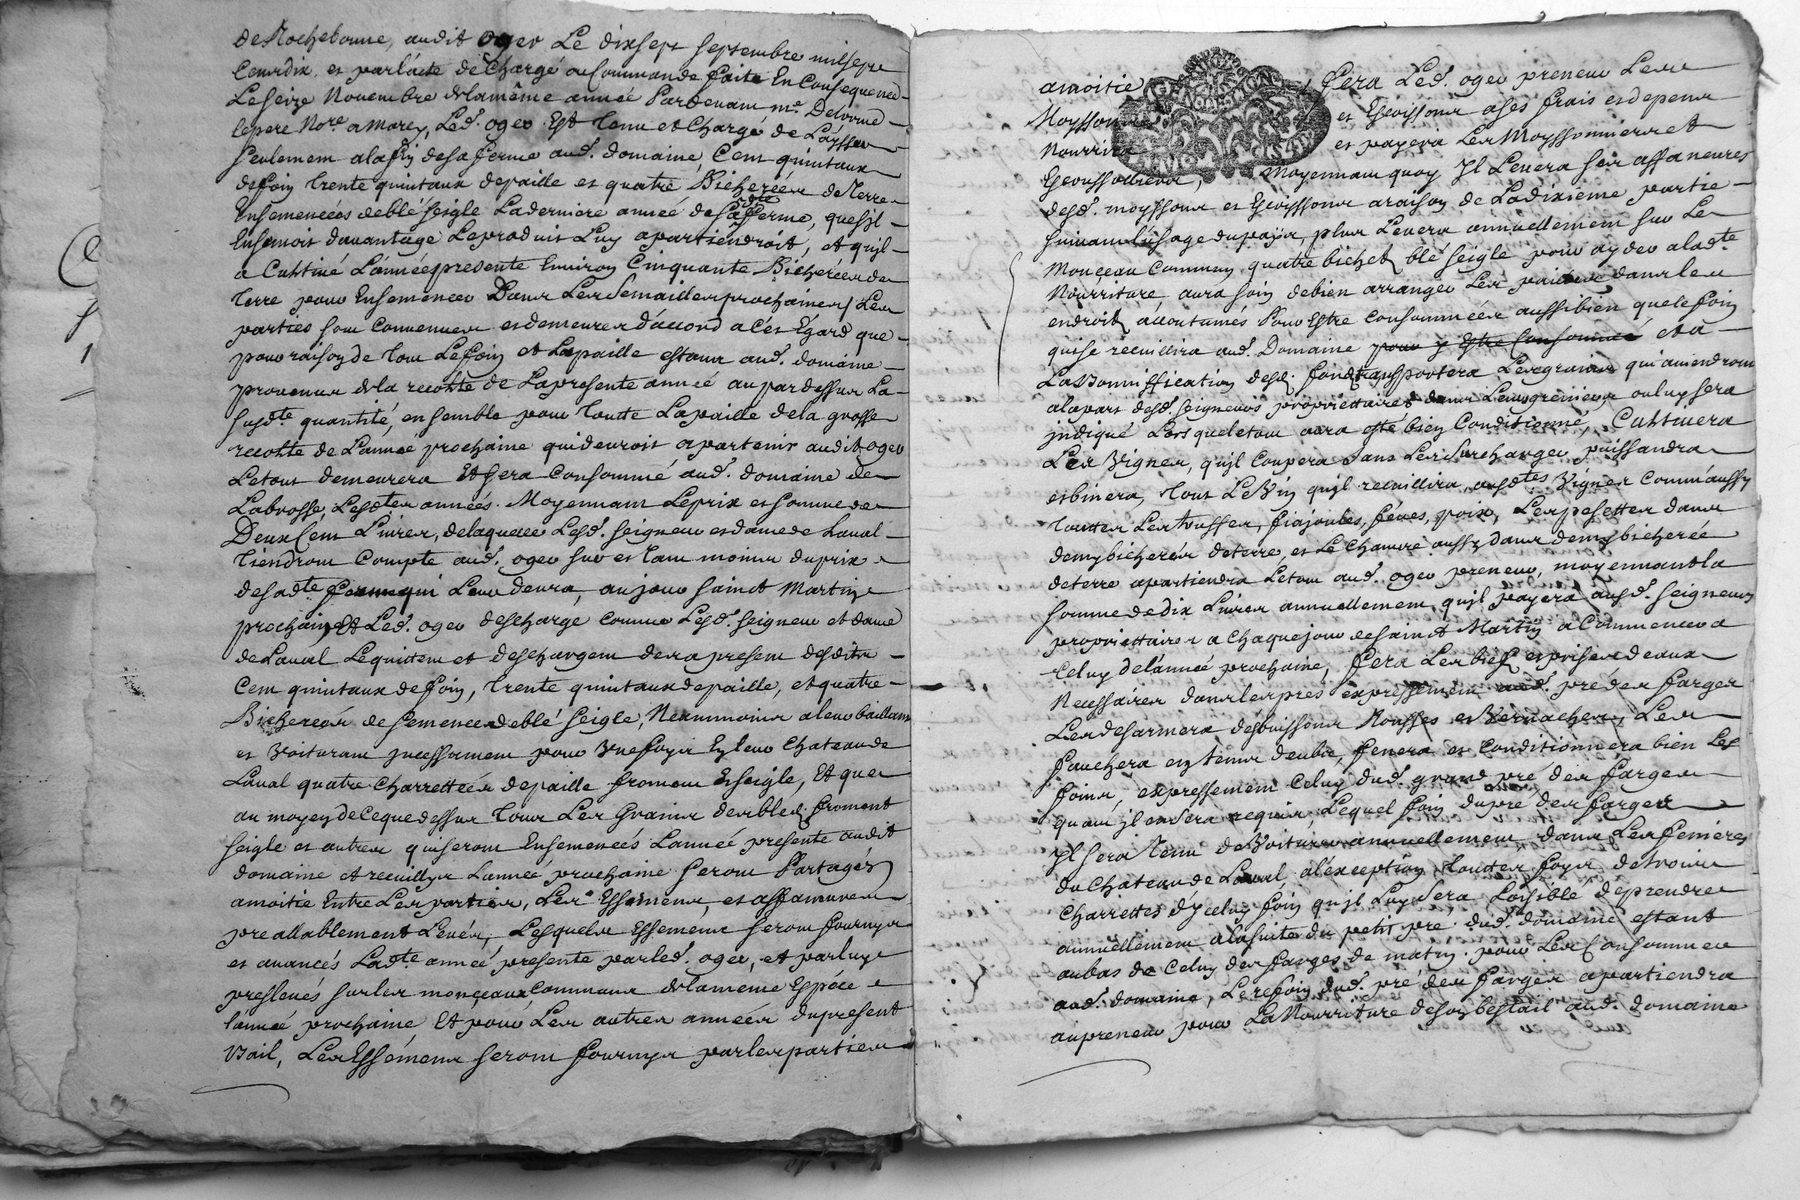 de Rochebonne, audit oger Le dixsept septembre milsept
Cens dix, et par l'acte de Chargé ou Commande faite En Consequence
Le seize Novembre de la même année Pardevant me. Delorme
le pere Nore. a Marcy, Led. oger Est Tenu et Chargé de Laysser
seulement a la fin de sa ferme aud. domaine, Cent quintaux
de foin Trente quintaux de paille et quatre Bicherées de Terre
Ensemencées de blé seigle La derniere année de sadte ferme, que s'il
Ensemoit davantage Le produit Luy apartiendroit, et qu'jl
a Cultivé L'année presente Environ Cinquante Bicherées de
Terre pour Ensemencer Dans Les semailles prochaines, Les
parties sont Convenues et demeurés d'accord a Cet Egard que
pour raison de Tout Le foin et La paille estant aud. domaine
provenus de la recolte de La presente année au par dessus La
susdte quantité, ensemble pour Toutte La paille de la grosse
recolte de L'année prochaine qui devroit apartenir audit oger
Le tout demeurera Et sera Consommé aud. domaine de
Labrosse, Lesdtes années. Moyennant Le prix et somme de
Deux Cent Livres, de laquelle Lesd. seigneur et dame de Laval
Tiendront Compte aud. oger sur et Tant moins du prix
de sadte ferme qui Leur devra, au jour saint Martin
prochain, Et Led. oger descharge Comme Lesd. seigneur et dame
de Laval Le quittent et deschargent des a present desdits
Cent quintaux de foin, Trente quintaux de paille, et quatre
Bicherées de semences de blé seigle, Neanmoins a leur baillant
et Voiturant jncessament pour Vne foys En leur Chateau de
Laval quatre Charrettées de paille froment Et seigle, Et que
au moyen de Ce que dessus Tous Les Grains des bleds froment
seigle et autres qui seront Ensemencés L'année presente audit
domaine Et recuillys L'année prochaine seront Partagés
a moitié Entre Les parties, Les Essemens, et affanures
preallablement Levés, Lesquels Essemens seront fournys
et avancés Ladte année presente par led. oger, et par luy
preslevés sur les monçeaux Communs de la meme Espéce
l'année prochaine Et pour Les autres années du present
Bail, Les Essémens seront fournys par les parties
a moitié, fera Led. oger preneur Les
Moyssons et Escoissons a ses frais et depens
Nourrira et payera Les Moyssonniers et
Escoussouliers, Moyennant quoy Il Levera Les affaneures
desd. moyssons et Escoyssons a raison de La dixiéme partie
suivant L'usage du païs, plus Levera annuellement sur Le
Monçeau Commun quatre bichets blé seigle pour ayder a ladte
Nourriture aura soin de bien arranger Les pailles dans les
endroits accoutumés Pour Estre Consommées aussi bien que le foin
qui se recuillira aud. Domaine pour y Estre Consommé et a
La Bonniffication desd. fonds transportera Les grains qui aviendront
a la part desd. seigneurs propriettaires dans Leurs greniers ou luy sera
jndiqué Lorsque le tout aura esté bien Conditionné, Cultivera
Les Vignes, qu'jl Coupera sans Les surcharger puissandra
et binera, Tout Le Vin qu'jl recuillira, ausdtes Vignes Comm'aussy
Touttes Les truffes, fiajoules, feves, poix, Les pesettes dans
demy bicherée de terre, et Le Chanvre aussy dans demy bicherée
de terre apartiendra Le tout aud. oger preneur, moyennant la
somme de dix Livres annuellement, qu'jl payera ausd. seigneurs
propriettaires a Chaque jour de saint Martin a Commencer a
Celuy de l'année prochaine, fera Les biefs et prises deaux
Necessaires dans les prés expressement aud. pré des farges
Les desarmera des buissons Rousses et Vernaches, Les
fauchera en tems deube, fenera et Conditionnera bien Les
foins, expressement Celuy dud. grand pré des farges
quant jl en sera requis, Lequel foin du pré des farges
Il sera Tenu de Voiturer annuellement dans Les fenieres
du Chateau de Laval a l'exception Touttes foys de trois
Charrettes d'jceluy foin qu'jl Luy sera Loisible de prendre
annuellement a la suite du petit pré dud. domaine estant
au bas de Celuy des farges de matin pour Les Consommer
aud. domaine, Le refoin dud. pré des farges apartiendra
au preneur pour La Nourriture de son bestail aud. domaine